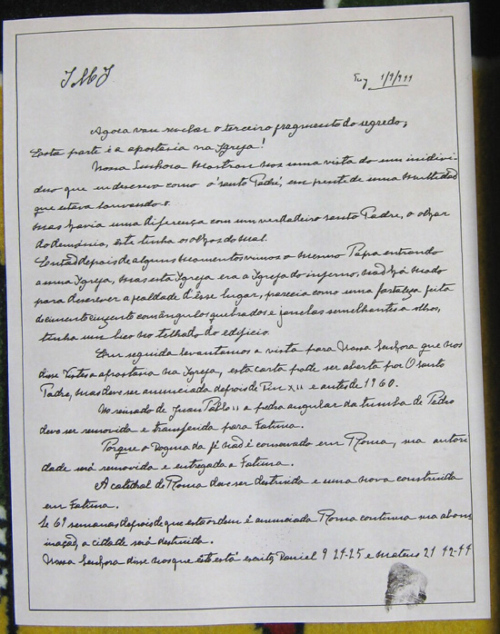 JMJ
Tuy 1/9/944
Agora vou revelar o terceiro fragmento do segredo;
Esta parte é a apostasia na Igreja!
Nossa Senhora mostrou-nos uma vista do um individ
duo que eu descrevo como o santo Padre, em frente de uma multidão
que estava louvando-o.
Mas havia uma diferença com um verdadeiro santo Padre, o olhar
do demónio, este tinha os olhos do mal.
Então depois de alguns momentos vimos o mesmo Papa entrando
a uma Igreja, mas esta Igreja era a Igreja do inferno, não há modo
para descrever a fealdade d'êsse lugar, parecia como uma fortaleza feita
de cimento cinzento com ângulos quebrados e janelas semelhantes a olhos,
tinha um bico no telhado do edificio.
Em seguida levantamos a vista para Nossa Senhora que nos
disse Vistes a apostasia na Igreja, esta carta pode ser aberta por O santo
Padre, mas deve ser anunciada depois de Pio XII e antes de 1960.
No reinado de Juan Pablo II a pedra angular da tumba de Pedro
deve ser removida e transferida para Fatima.
Porque o dogma da fé não é conservado em Roma, sua autori
dade será removida e entregada a Fatima.
A catedral de Roma deve ser destruida e uma nova construida
em Fatima.
Se 69 semanas depois de que esta ordem é anunciada, Roma continua sua abom
inação, a cidade será destruida.
Nossa Senhora disse-nos que isto está escrito, Daniel 9 24-25 e Mateus 21 42-44